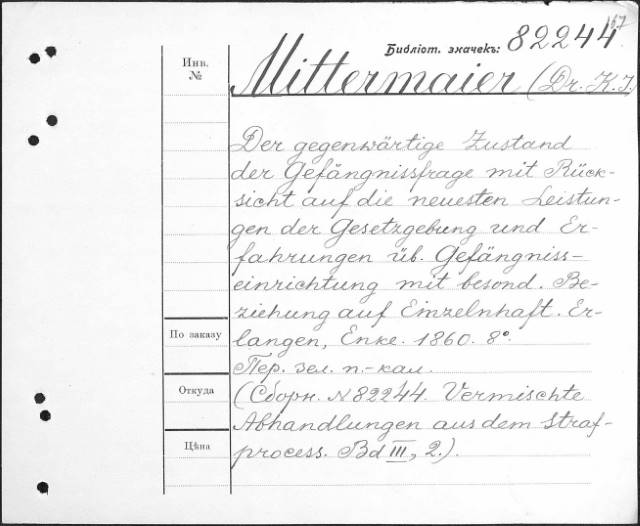 167
Библіот. значекъ: 82244
Инв.
№
Mittermaier (Dr. K. J.)
Der gegenwärtige Zustand
der Gefängnissfrage mit Rück-
sicht auf die neuesten Leistun-
gen der Gesetzgebung und Er-
fahrungen üb. Gefängniss-
einrichtung mit besond. Be-
ziehung auf Einzelnhaft. Er-
По заказу
langen, Enke. 1860. 8º.
Пер. зел. п.-кал.
Откуда
(Сборн. №82244. Vermischte
Abhandlungen aus dem Straf-
Цѣна
process. Bd III, 2.).